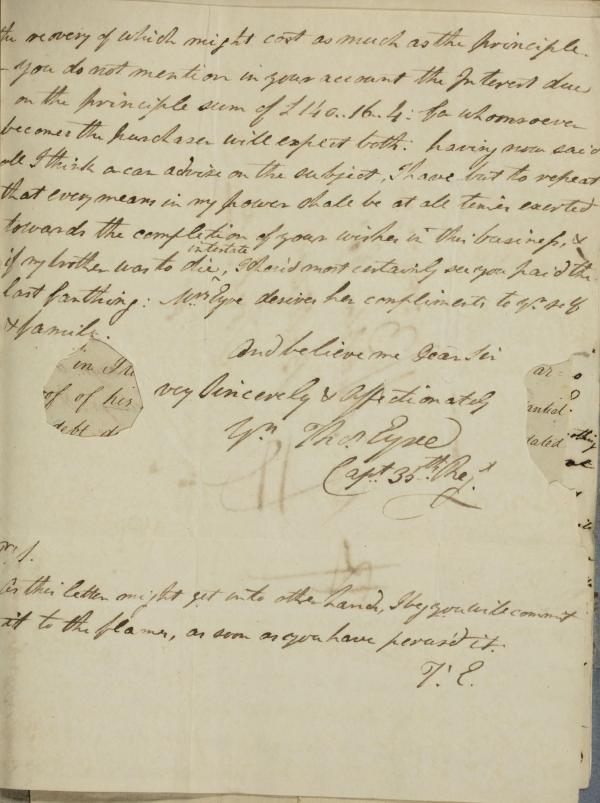 the recovery of which might cost as much as the principle.
- you do not mention in your account the Interest due
on the principle sum of £140.16.4: for whomsoever
becomes the purchaser will expect both: having now said
all I think or can advise on the subject, I have but to repeat
that every means in my power shall be at all times exerted
towards the completion of your wishes in this business, &
intestate
if my brother was to die, I should most certainly see you paid the
last farthing: Mrs Eyre desires her compliments to yr self
& family.
And believe me Dear Sir
very Sincerely & affectionately
Yrs Thos Eyre
Capt 35th Regt
in
of of his
debt d
ar
dated
P. S.
As this letter might get into other hands, I beg you will commit
it to the flames, as soon as you have perused it.
T. E.